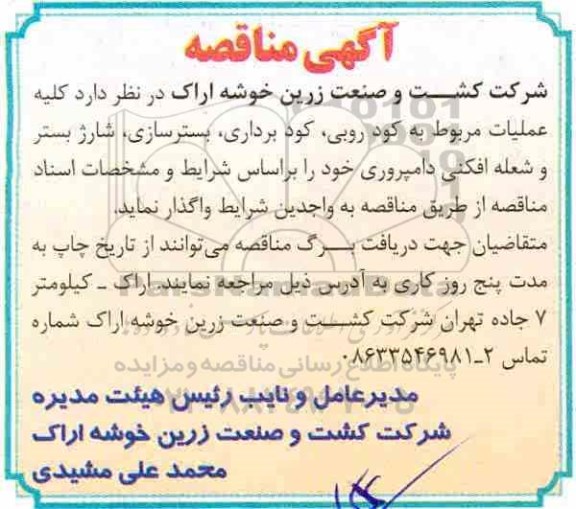 آگهی مناقصه
شرکت کشت و صنعت زرین خوشه اراک در نظر دارد کلیه
عملیات مربوط به کود روبی، کود برداری، بسترسازی، شارژ بستر
و شعله افکنی دامپروری خود را براساس شرایط و مشخصات اسناد
مناقصه از طریق مناقصه به واجدین شرایط واگذار نماید.
متقاضیان جهت دریافت برگ مناقصه می‌توانند از تاریخ چاپ به
مدت پنج روز کاری به آدرس ذیل مراجعه نمایند. اراک ـ کیلومتر
۷ جاده تهران شرکت کشت و صنعت زرین خوشه اراک شماره
تماس ۲ـ۰۸۶۳۳۵۴۶۹۸۱
پایگاه اطلاع رسانی مناقصه و مزایده
مدیرعامل و نایب رئیس هیئت مدیره
شرکت کشت و صنعت زرین خوشه اراک
محمد علی مشیدی